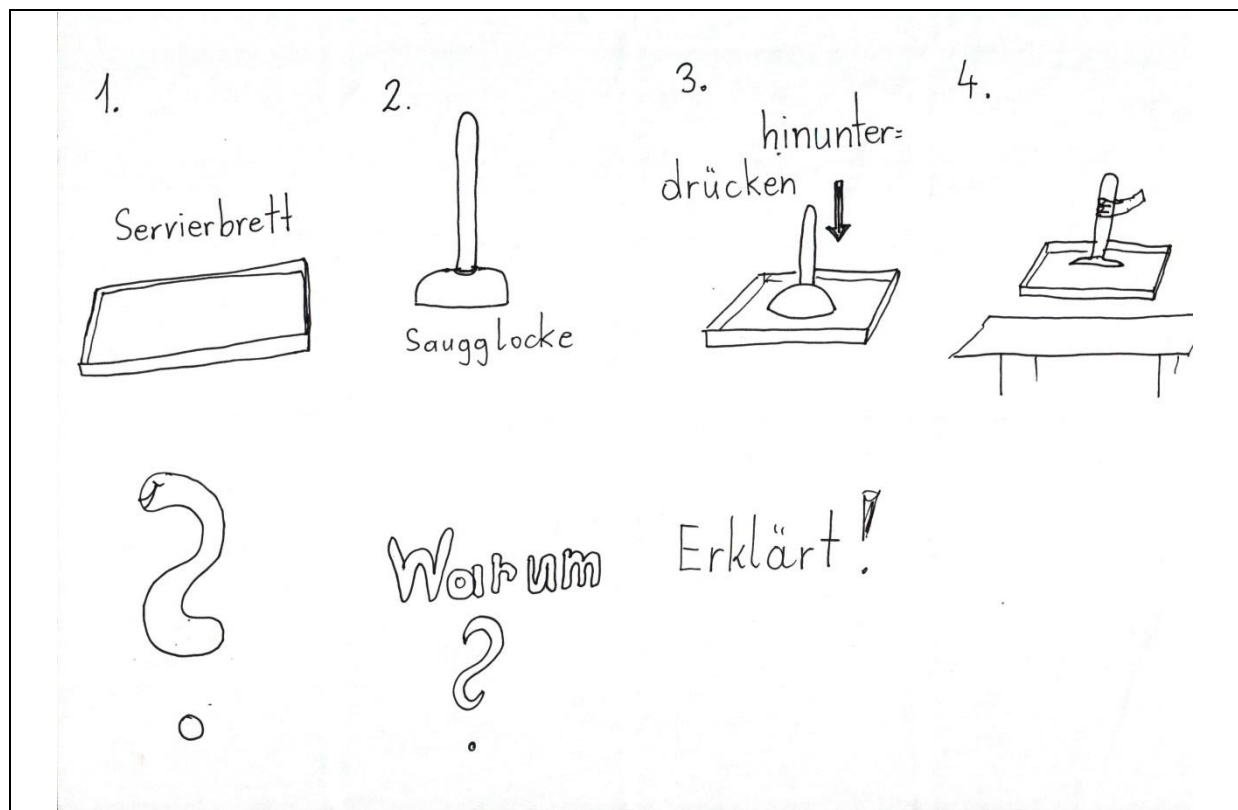 1.
Servierbrett
2.
Saugglocke
3.
hinunter=
drücken
4.
?
Warum
?
Erklärt!